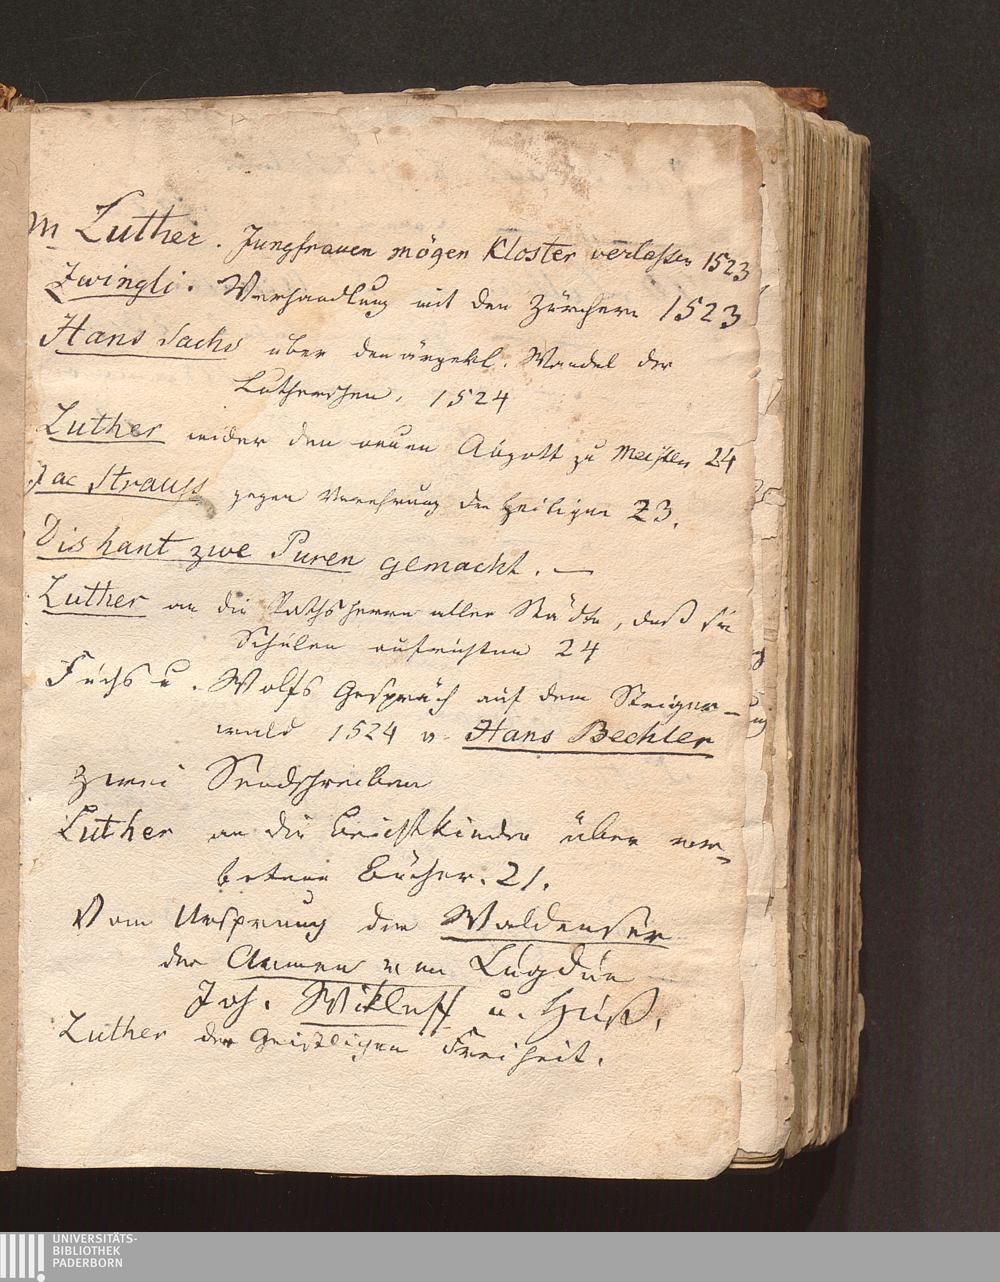 M Luther. Jungfrauen mögen Kloster verlaßen 1523
Zwingli. Verhandlung mit den Zürchern 1523
Hans Sachs über den ärgerl. Wandel der
Lutherschen, 1524
Luther wider den neuen Abgott zu Meißen 24
Jac Strauss gegen Verehrung der Heiligen 23.
Dis hant zwe Puren gemacht. —
Luther an die Rathsherren aller Städte, daß sie
Schulen aufrichten 24
Fuchs u. Wolfs Gespräch auf dem Steiger-
wald 1524 v. Hans Bechler
zwei Sendschreiben
Luther an die Beichtkinder über ver-
botene Bücher. 21.
Vom Ursprung der Waldenser
der Armen von Lugdun
Joh. Wikleff u. Huß.
Luther der Geistlichen Freiheit.
UNIVERSITÄTS-
BIBLIOTHEK
PADERBORN